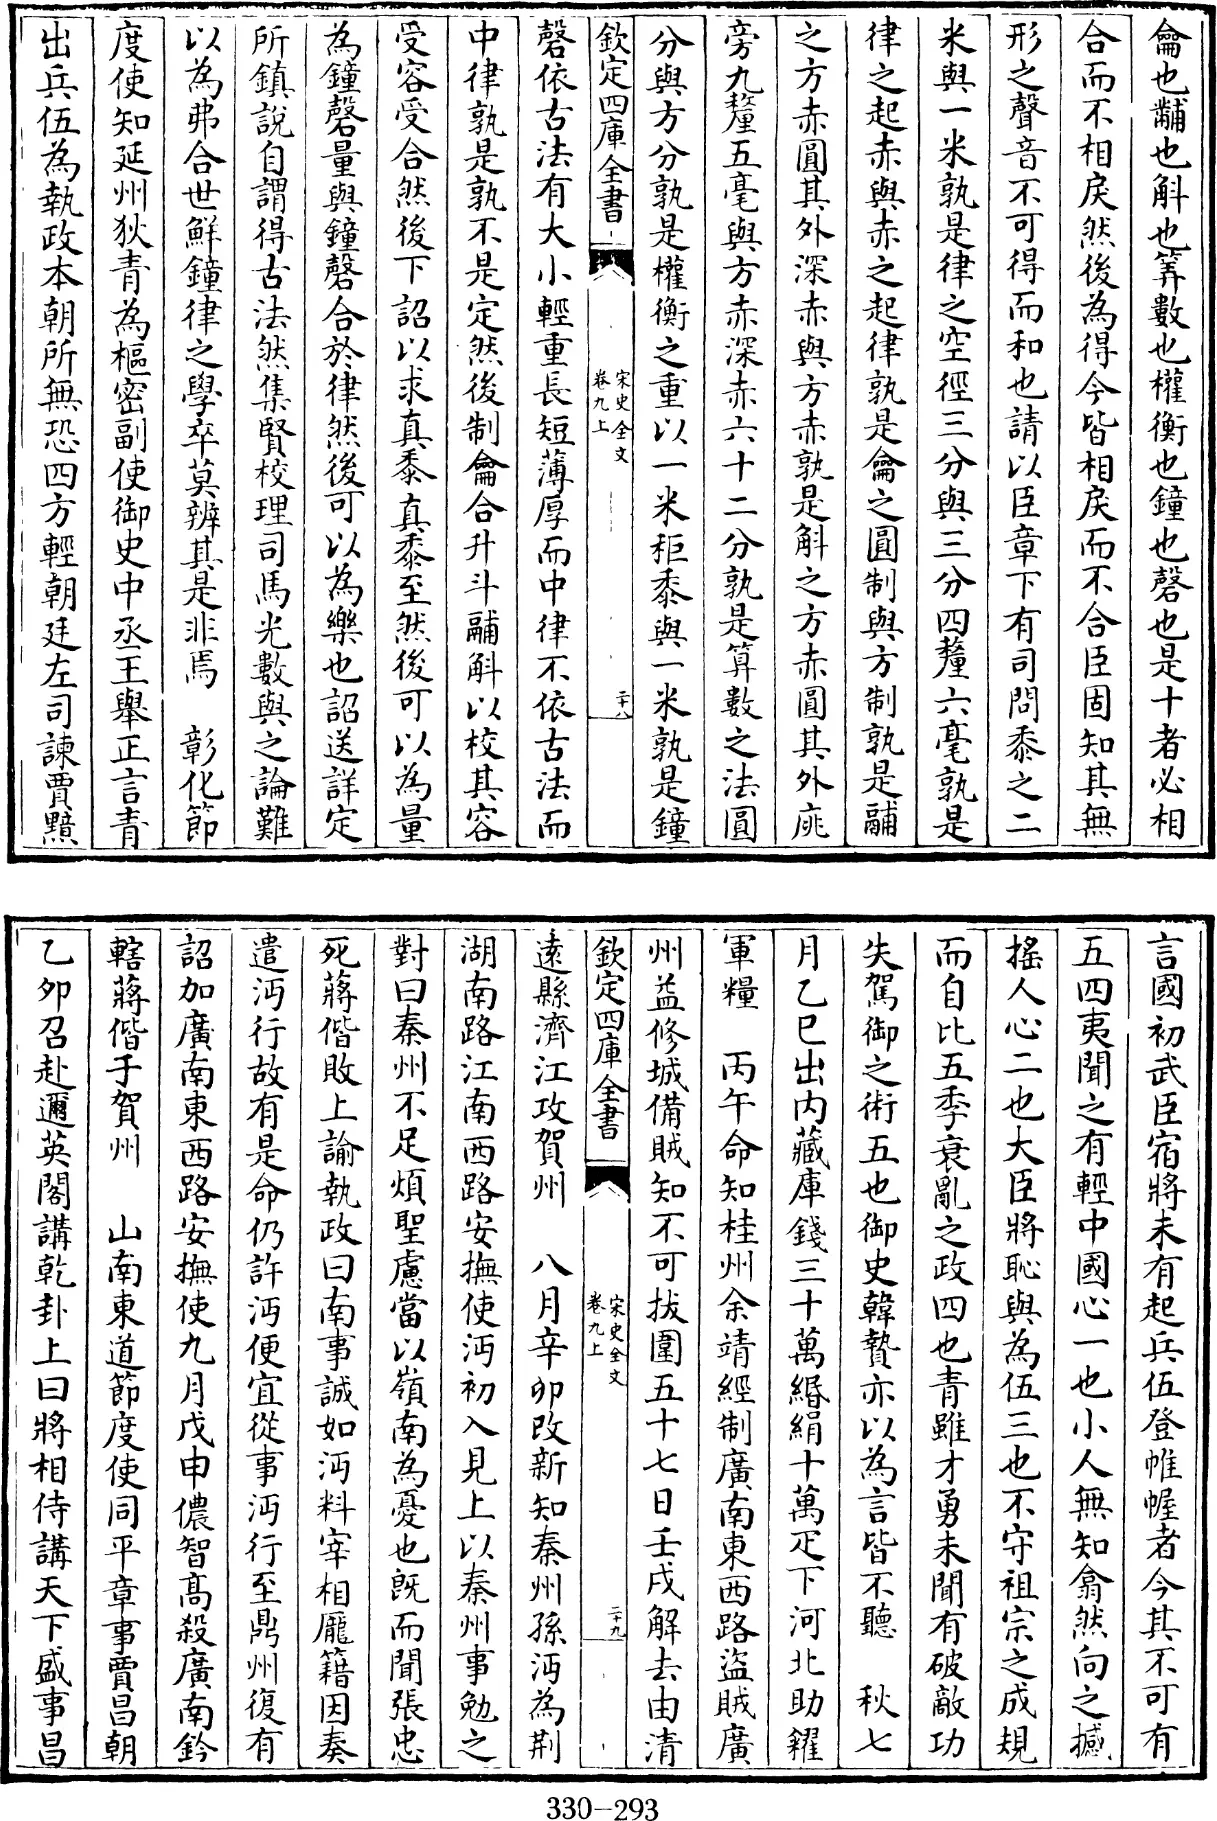 龠也鬴也斛也算數也權衡也鐘也磬也是十者必相
合而不相戾然後為得今皆相戾而不合臣固知其無
形之聲音不可得而和也請以臣章下有司問黍之二
米與一米孰是律之空徑三分與三分四釐六毫孰是
律之起赤與赤之起律孰是龠之圓制與方制孰是鬴
之方赤圓其外深赤與方赤孰是斛之方赤圓其外庣
旁九釐五毫與方赤深赤六十二分孰是算數之法圓
分與方分孰是權衡之重以一米秬黍與一米孰是鐘
欽定四庫全書
宋史全文
卷九上
二十八
磬依古法有大小輕重長短薄厚而中律不依古法而
中律孰是孰不是定然後制龠合升斗鬴斛以校其容
受容受合然後下詔以求真黍真黍至然後可以為量
為鐘磬量與鐘磬合於律然後可以為樂也詔送詳定
所鎮說自謂得古法然集賢校理司馬光數與之論難
以為弗合世鮮鐘律之學卒莫辨其是非焉　彰化節
度使知延州狄青為樞密副使御史中丞王舉正言青
出兵伍為執政本朝所無恐四方輕朝廷左司諫賈黯
言國初武臣宿將未有起兵伍登帷幄者今其不可有
五四夷聞之有輕中國心一也小人無知翕然向之撼
搖人心二也大臣將恥與為伍三也不守祖宗之成規
而自比五季衰亂之政四也青雖才勇未聞有破敵功
失駕御之術五也御史韓贄亦以為言皆不聽　秋七
月乙巳出内藏庫錢三十萬緡絹十萬疋下河北助糴
軍糧　丙午命知桂州余靖經制廣南東西路盜賊廣
州益修城備賊知不可拔圍五十七日壬戌解去由清
欽定四庫全書
宋史全文
卷九上
二十九
遠縣濟江攻賀州　八月辛卯改新知秦州孫沔為荆
湖南路江南西路安撫使沔初入見上以秦州事勉之
對曰秦州不足煩聖慮當以嶺南為憂也既而聞張忠
死蔣偕敗上諭執政曰南事誠如沔料宰相龐籍因奏
遣沔行故有是命仍許沔便宜從事沔行至鼎州復有
詔加廣南東西路安撫使九月戊申儂智高殺廣南鈐
轄蔣偕于賀州　山南東道節度使同平章事賈昌朝
乙卯召赴邇英閣講乾卦上曰將相侍講天下盛事昌
330-293